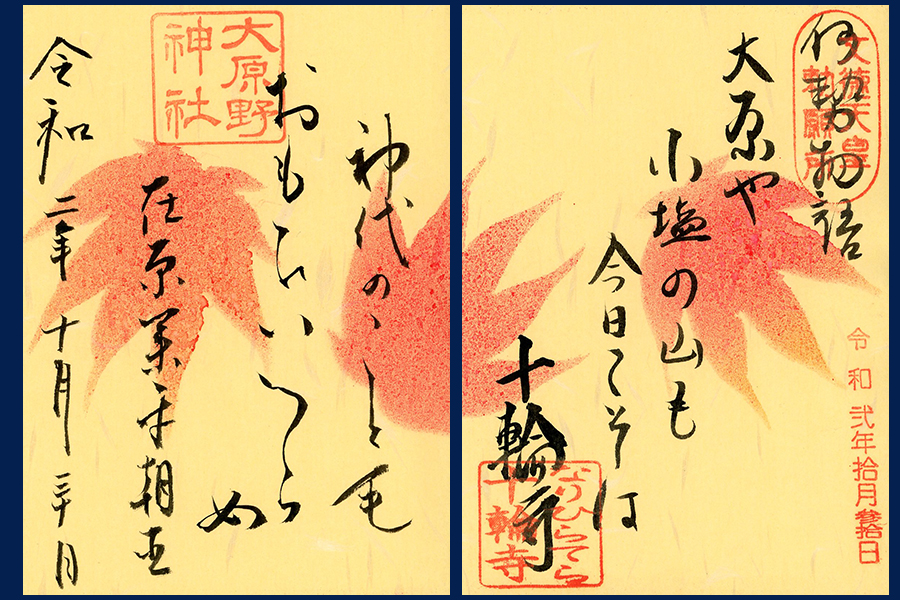 文徳天皇
勅願所
伊勢物語
令和弐年拾月参拾日
大原や
小塩の山も
今日こそは
十輪寺
なりひらてら
十輪寺
神代のこと毛
おもひいつらめ
大原野
神社
在原業平朝臣
令和二年十月三十日